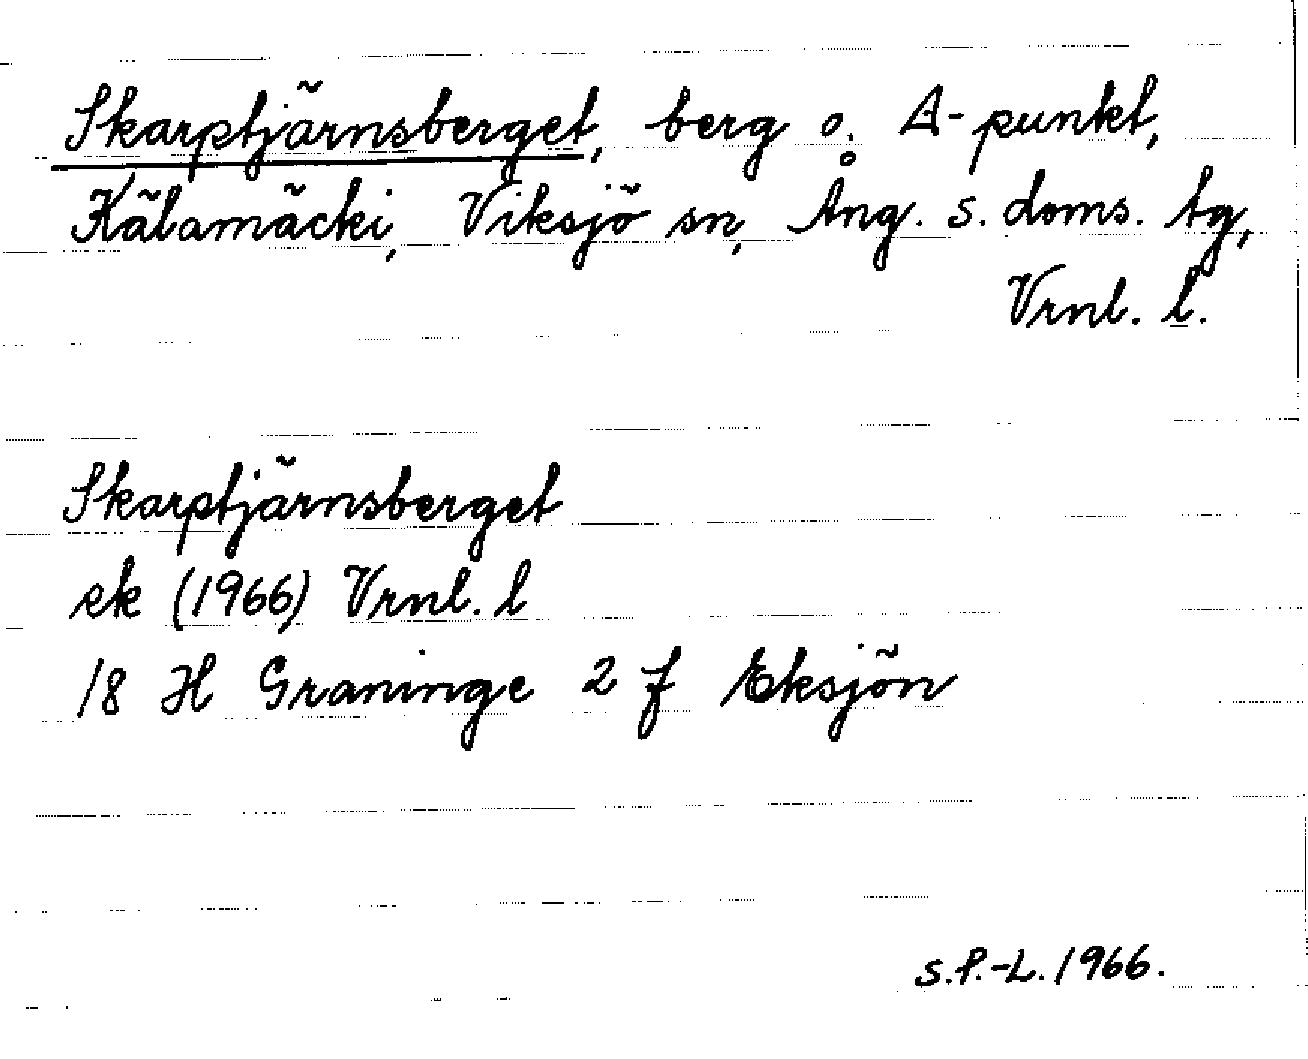 Skarptjärnsberget, berg o. A-punkt,
Kälamäcki, Viksjö sn, Ång. s. doms. tg,
Vrnl. l.
Skarptjärnsberget
ek (1966) Vrnl. l
18 H Graninge 2 f Eksjön
S.P.-L. 1966.